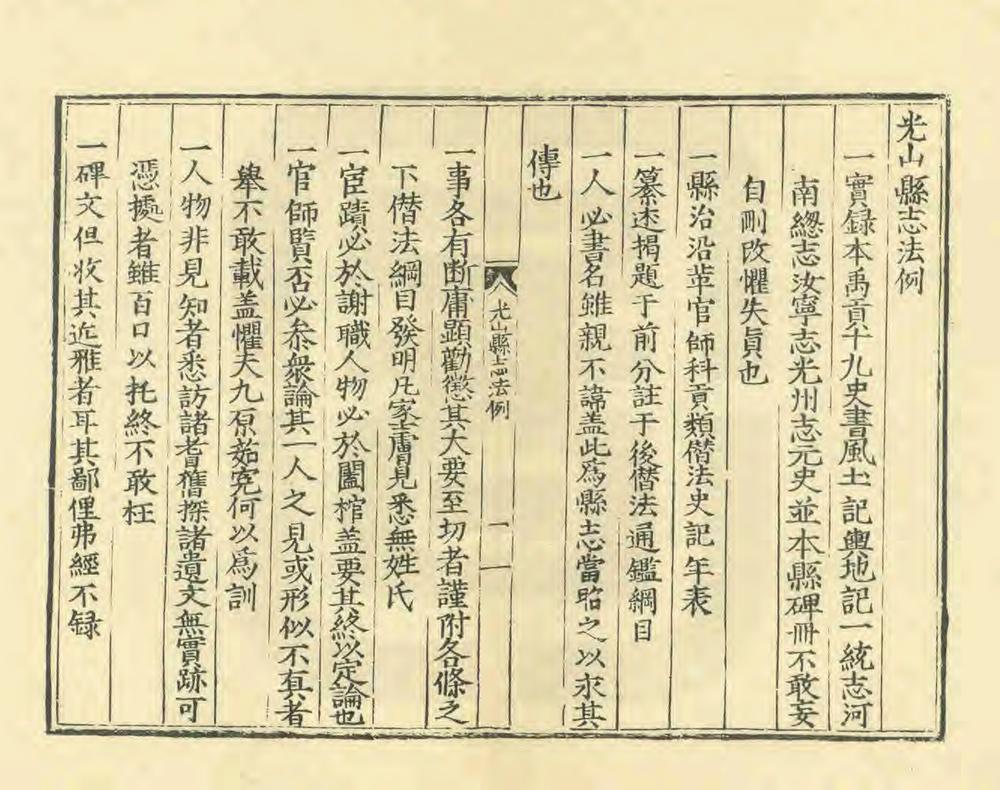 光山縣志法例
一實録本禹貢十九史書風土記輿地記一統志河
南緫志汝寧志光州志元史並本縣碑冊不敢妄
自刪改懼失眞也
一縣治沿革官師科貢類僣法史記年表
一纂述揭題于前分註于後僣法通鑑綱目
一人必書名雖親不諱盖此爲縣志當昭之以求其
傳也
光山縣志法例
一事各有断庸顕勸懲其大要至切者謹附各條之
下僣法綱目發明凡家士膚見悉無姓氏
一宦蹟必於謝職人物必於闔棺盖要其終以定論也
一官師賢否必叅衆論其一人之見或形似不有具者
舉不敢載盖懼夫九原茹寃何以爲訓
一人物非見知者悉訪諸耆舊探諸遺文無實跡可
憑據者雖百口以托終不敢枉
一碑文但收其近雅者耳其鄙俚弗經不録